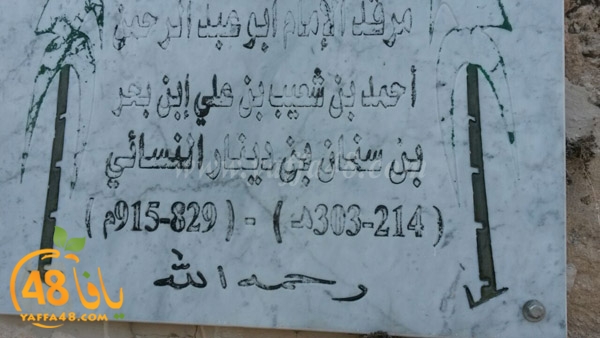 مرقد الإمام أبو عبد الرحمن
أحمد بن شعيب بن علي إبن بحر
بن سنان بن دينار النسائي
(214-303هـ) - (829-915م)
رحمه الله
يافا 48
YAFFA48.com